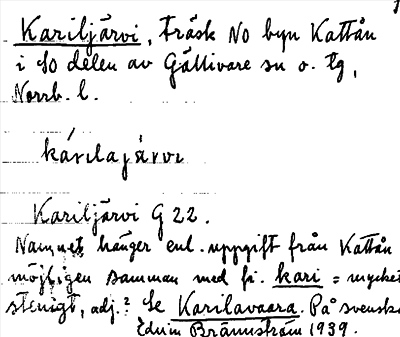 Kariljärvi, träsk NO byn Kattån
i SO delen av Gällivare sn o. tg,
Norrb. l.
kárilajärvi
Kariljärvi G 22.
Namnet hänger enl. uppgift från Kattån
möjligen samman med fi. kari = mycket
stenigt, adj.? Se Karilavaara. På svenska
Edvin Brännström 1939.